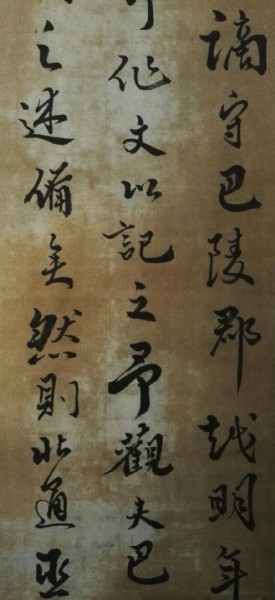 謫守巴陵郡越明年
作文以記之予觀夫巴
之述備矣然則北通巫